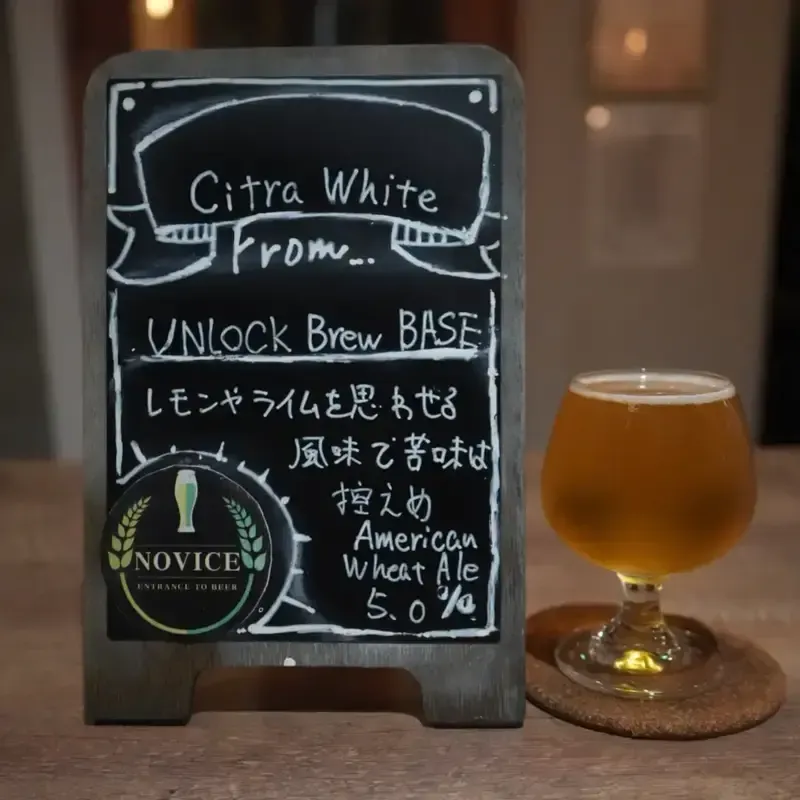 Citra White
From...
UNLOCK Brew BASE
レモンやライムを思わせる
風味で苦味は
控えめ
American
Wheat Ale
5.0%
NOVICE
ENTRANCE TO BEER